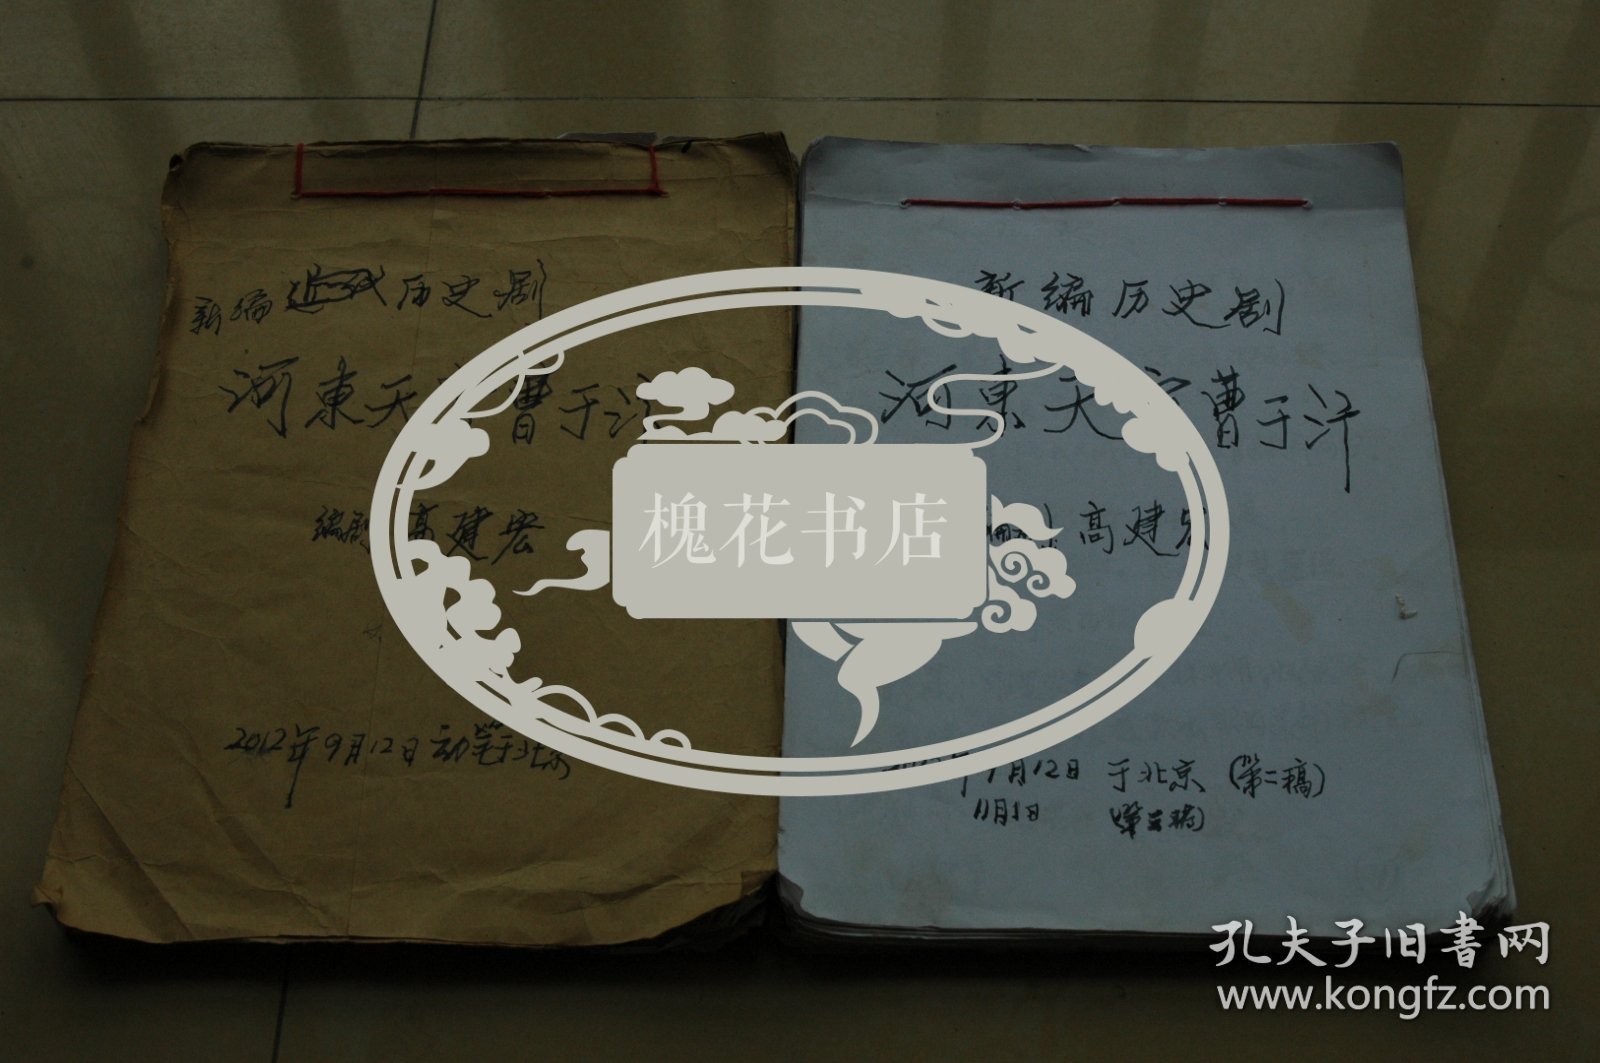 新编历史剧
河東天官曹于汴
编剧 高建宏
2012年9月12日动笔于北京
新编历史剧
河東天官曹于汴
高建宏
年9月12日 于北京 (第二稿)
11月1日 (第三稿)
槐花书店
孔夫子旧書网
www.kongfz.com